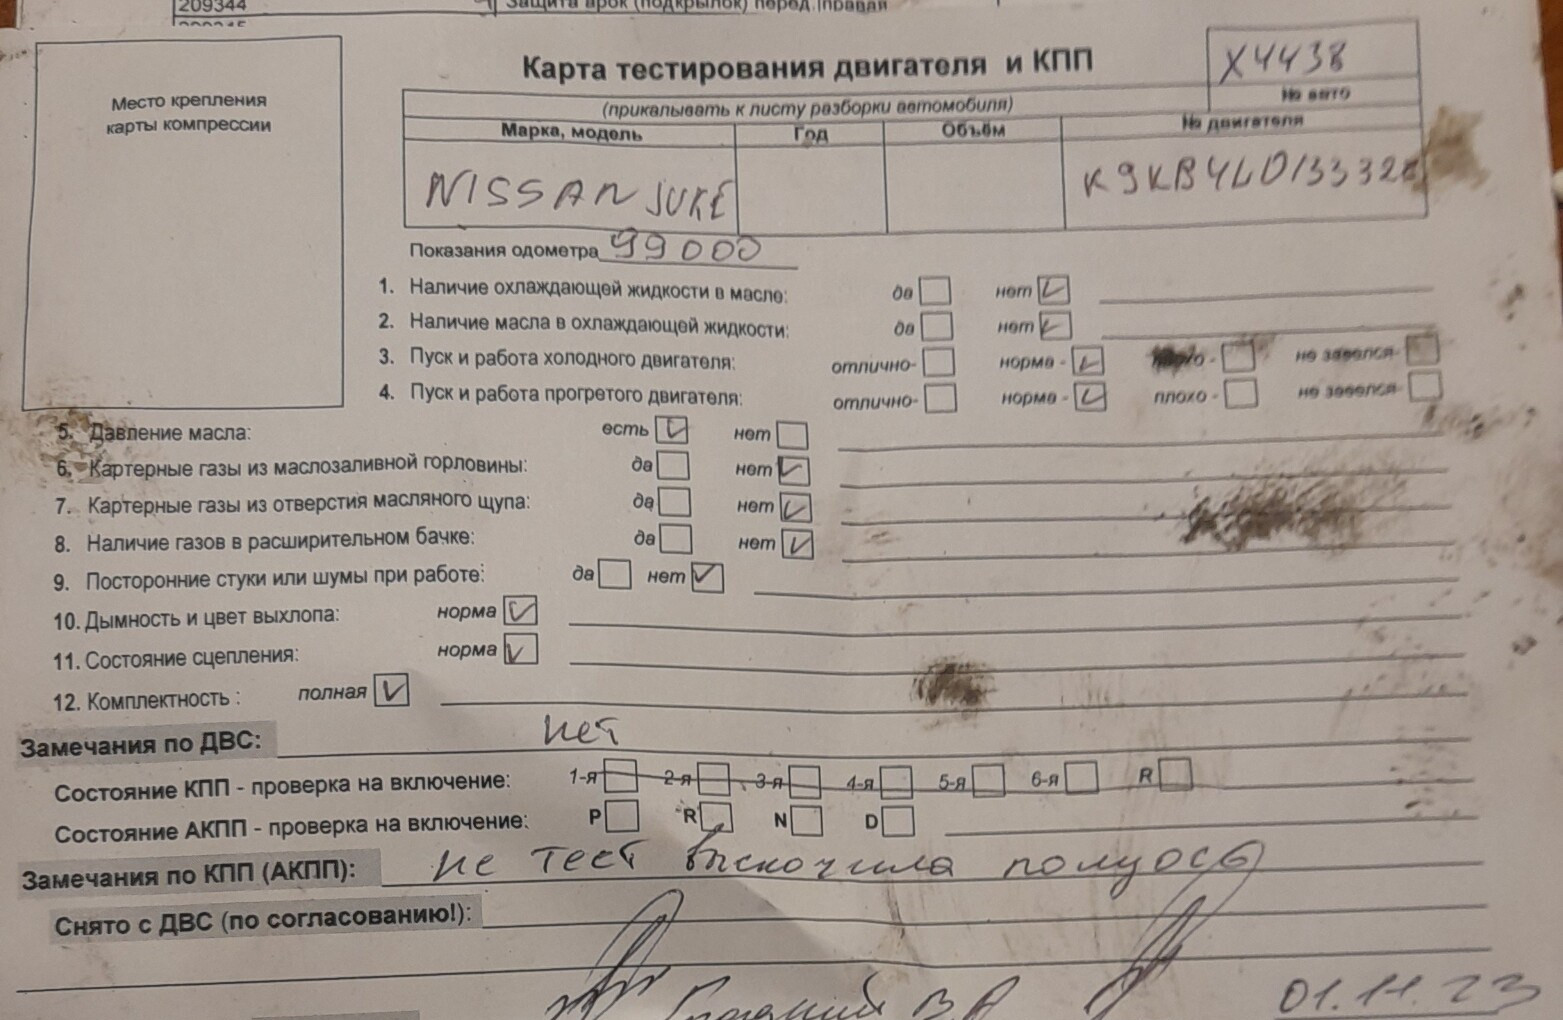 209344
Защита арок (подкрылок) перед.правая
Карта тестирования двигателя и КПП
X4438
№ авто
Место крепления
карты компрессии
(прикалывать к листу разборки автомобиля)
Марка, модель Год Объём № двигателя
NISSAN JUKE K9KB4LD133328
Показания одометра 99000
1. Наличие охлаждающей жидкости в масле: да нет
2. Наличие масла в охлаждающей жидкости: да нет
3. Пуск и работа холодного двигателя: отлично- норма - плохо - не завелся-
4. Пуск и работа прогретого двигателя: отлично- норма - плохо - не завелся-
5. Давление масла: есть нет
6. Картерные газы из маслозаливной горловины: да нет
7. Картерные газы из отверстия масляного щупа: да нет
8. Наличие газов в расширительном бачке: да нет
9. Посторонние стуки или шумы при работе: да нет
10. Дымность и цвет выхлопа: норма
11. Состояние сцепления: норма
12. Комплектность : полная
Замечания по ДВС: нет
Состояние КПП - проверка на включение: 1-я 2-я 3-я 4-я 5-я 6-я R
Состояние АКПП - проверка на включение: P R N D
Замечания по КПП (АКПП): не тест выскочила полуось
Снято с ДВС (по согласованию!):
В.А
01.11.23